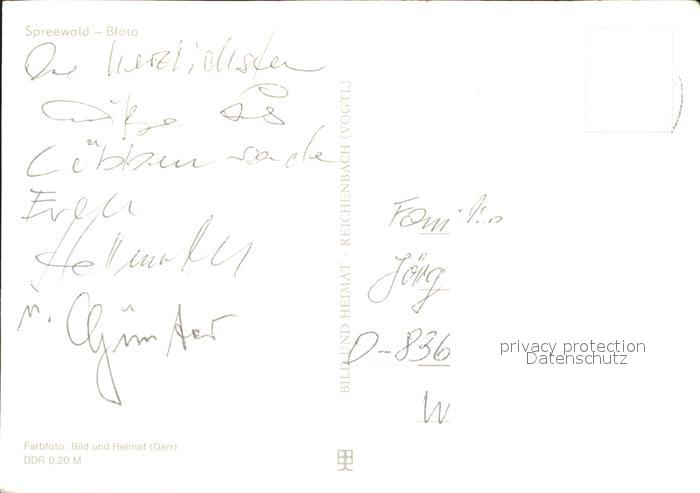 Spreewald – Błota
Die herzlichsten
Grüße aus
Lübben sendet
Euch
Hellmuth
u. Günter
BILD UND HEIMAT · REICHENBACH (VOGTL)
Familie
Jörg
D-836
W
privacy protection
Datenschutz
Farbfoto: Bild und Heimat (Darr)
DDR 0,20 M